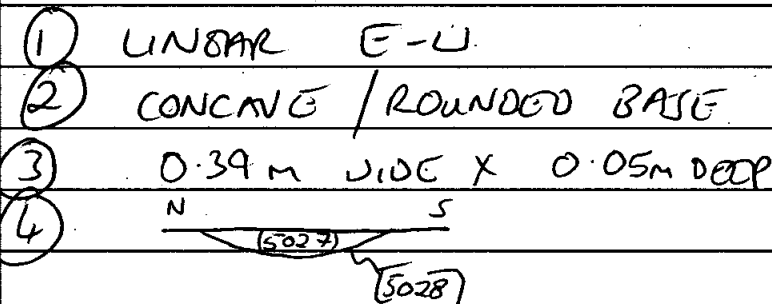 ① LINEAR E-W
② CONCAVE / ROUNDED BASE
③ 0.39m WIDE X 0.05m DEEP
④ N S
(5027)
[5028]